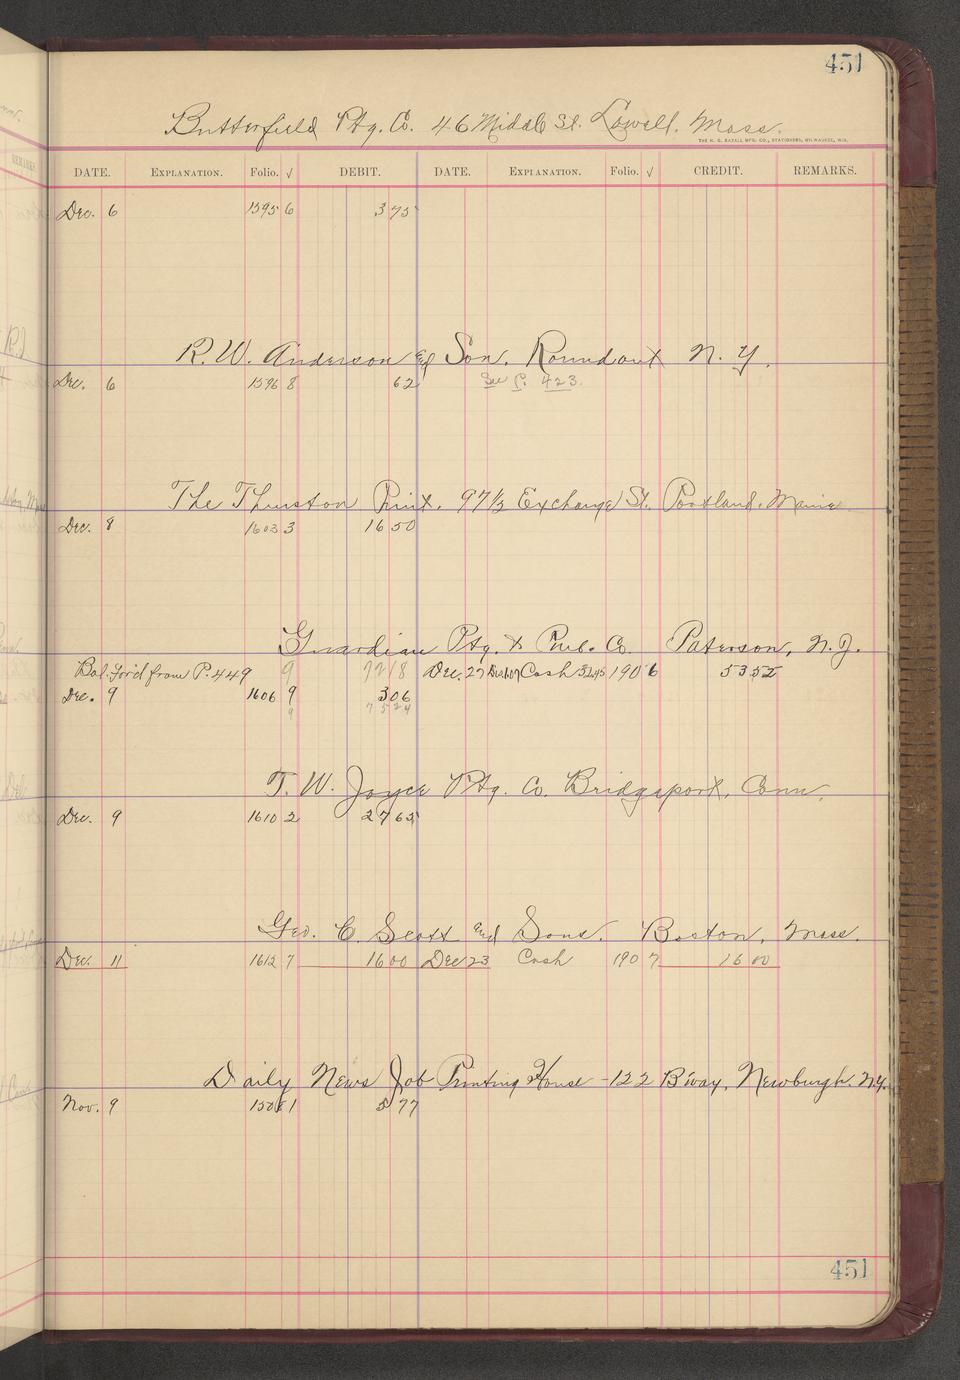 451
Butterfield Ptg. Co. 46 Middle St. Lowell, Mass.
THE H. G. RAZALL MFG. CO., STATIONERS, MILWAUKEE, WIS.
DATE. EXPLANATION. Folio. √ DEBIT. DATE. EXPLANATION. Folio. √ CREDIT. REMARKS.
Dec. 6 1595 6 3 75
R. W. Anderson and Son. Roundout N. Y.
Dec. 6 1596 8 62 See P. 423.
The Thurston Print. 97½ Exchange St. Portland, Maine.
Dec. 8 1603 3 16 50
Guardian Ptg. & Pub. Co. Paterson, N. J.
Bal. For'd from P. 449 9 72 18 Dec. 27 Cash 190 6 53 52
Dec. 9 1606 9 3 06
9 75 24
T. W. Joyce Ptg. Co. Bridgeport, Conn.
Dec. 9 1610 2 27 65
Geo. C. Scott and Sons. Boston, Mass.
Dec. 11 1612 7 16 00 Dec 23 Cash 190 7 16 00
Daily News Job Printing House - 122 B'way, Newburgh, N.Y.
Nov. 9 1 5 77
451